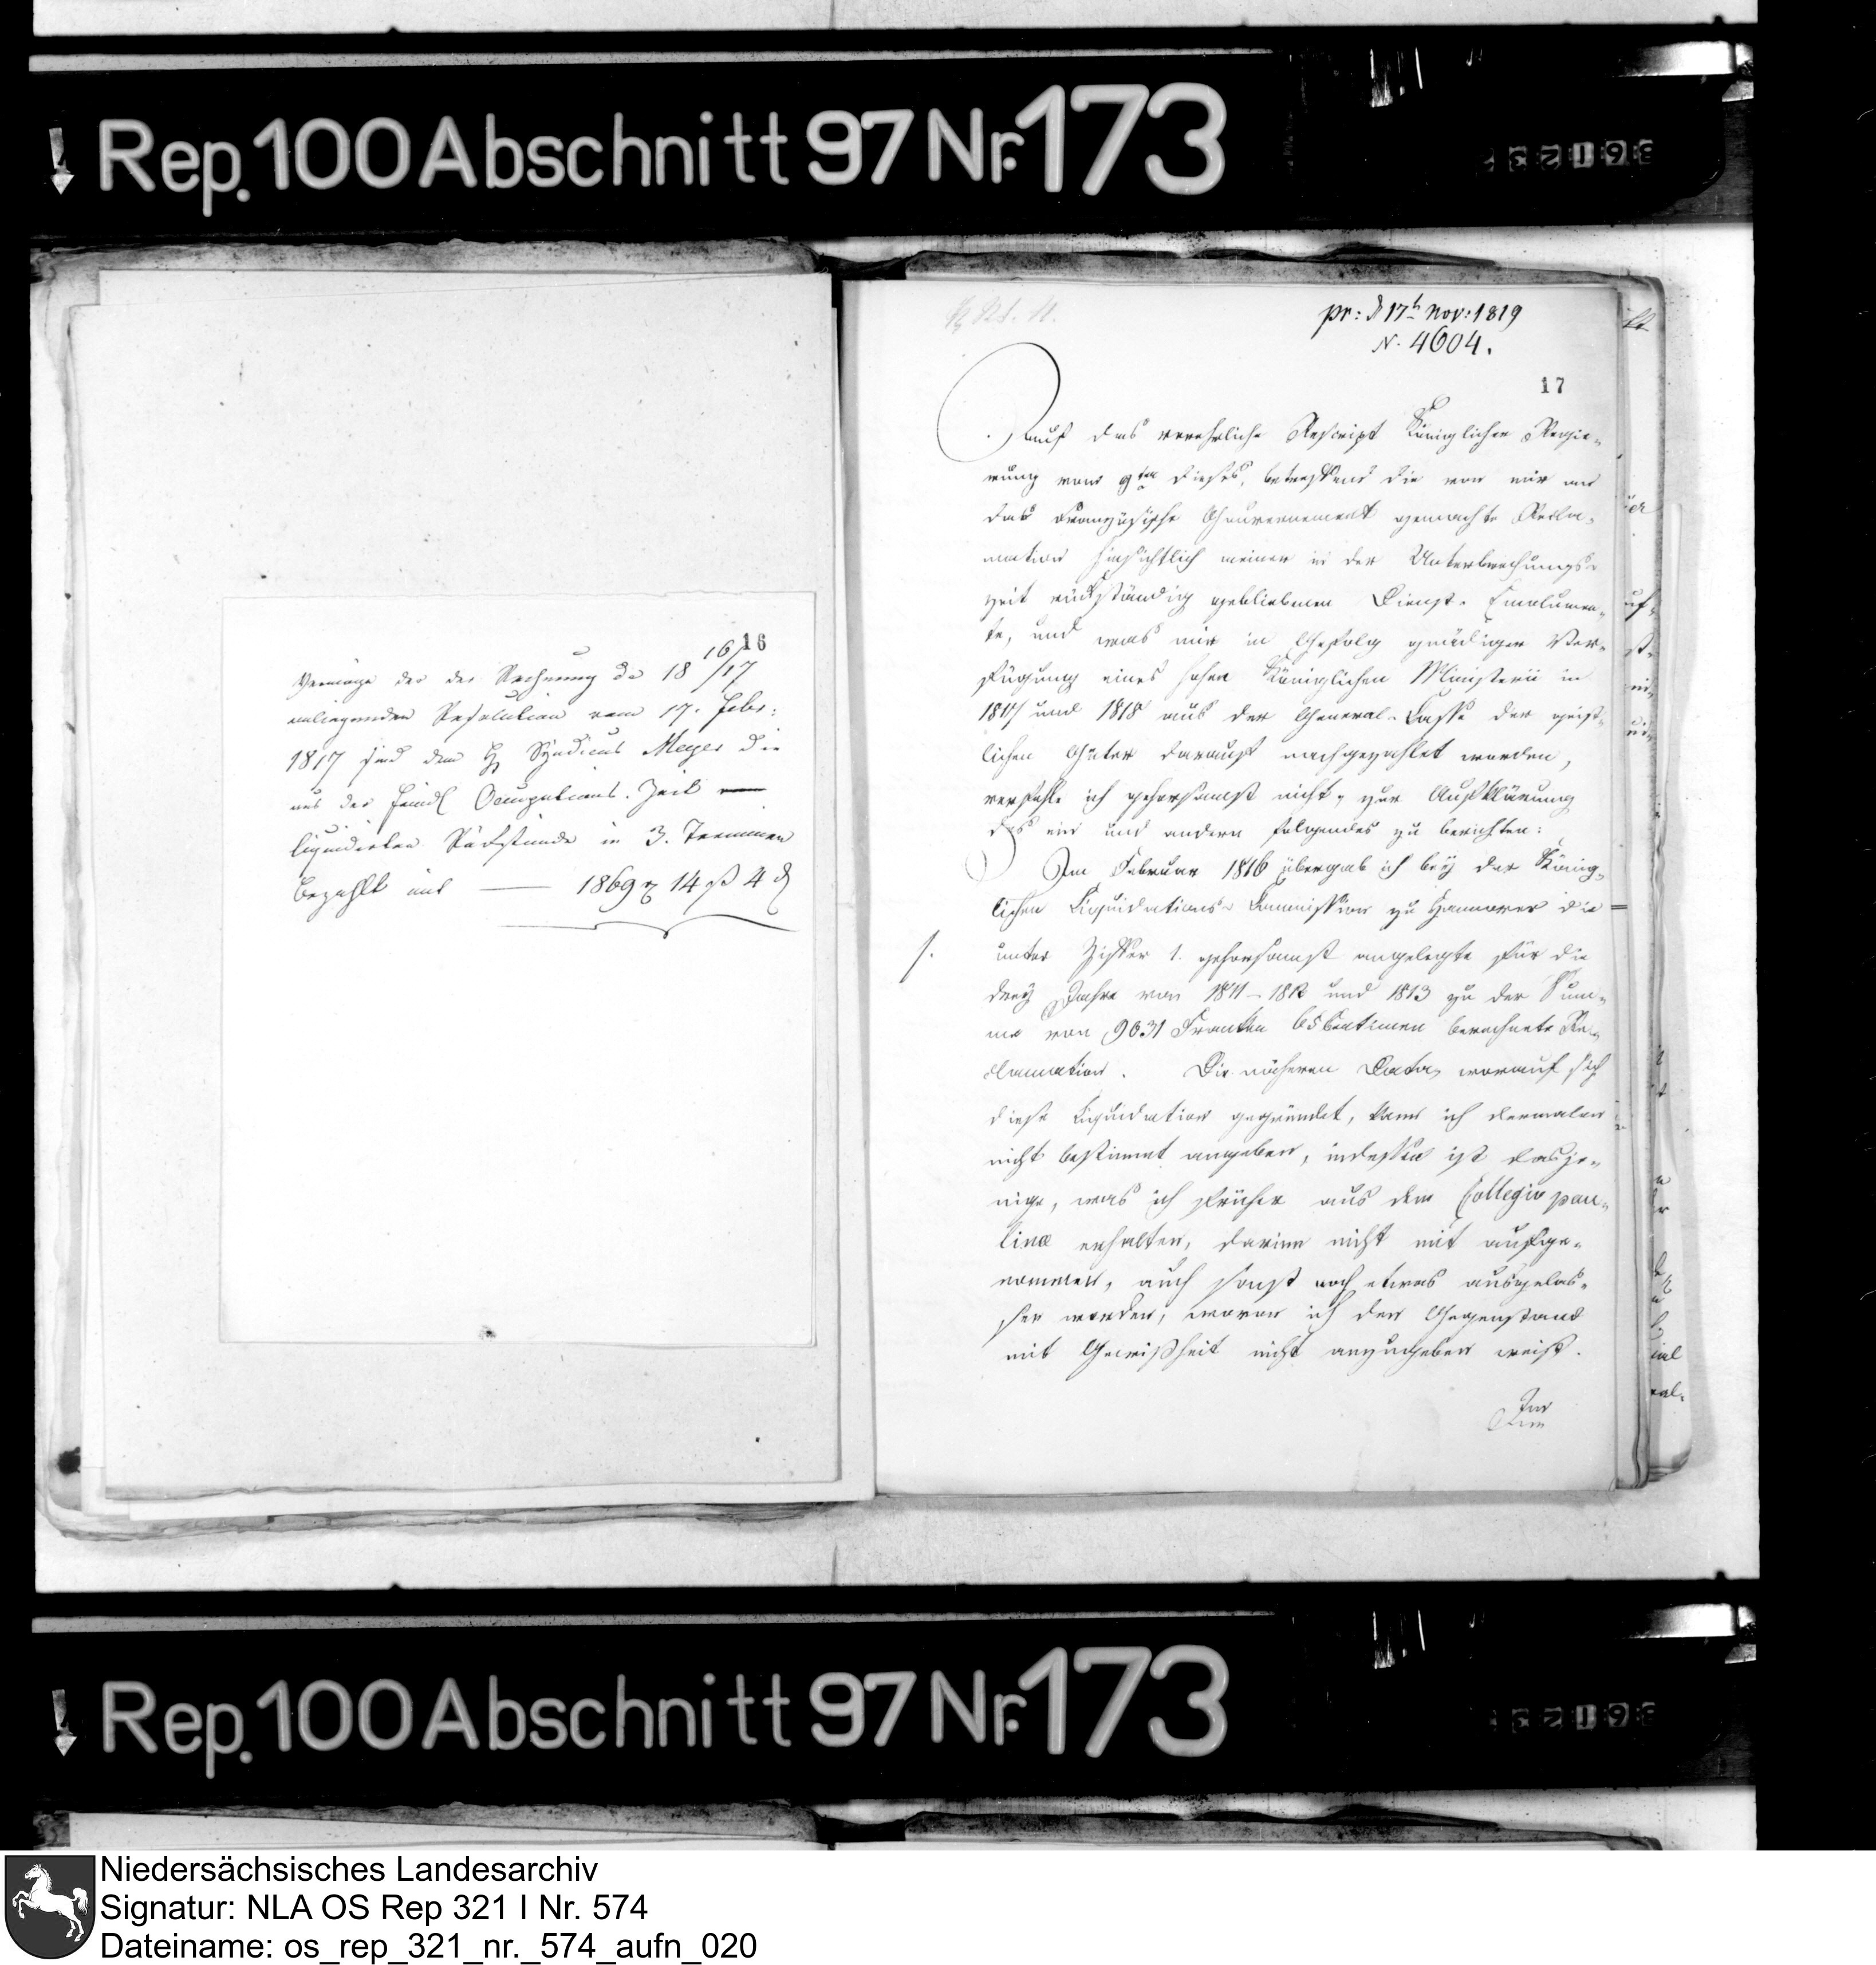 Rep. 100 Abschnitt 97 Nr. 173
16
Vermöge der der Rechnung de 18 16/17
anliegenden Resolution vom 17. Febr:
1817 sind dem H Syndicus Meyer die
aus der feindl Occupations-Zeit
liquidirten Rückstände in 3. Terminen
bezahlt mit — 1869 rt 14 ß 4 d
pr: d 17t Nov: 1819
N. 4604.
17
Auf das verehrliche Rescript Königlicher Regie-
rung vom 9ten dieses, betreffend die von mir an
das Französische Gouvernement gemachte Recla-
mation hinsichtlich meiner in der Unterbrechungs-
zeit rückständig gebliebenen Dienst-Emolumen-
te, und was mir in Gefolg gnädiger Ver-
fügung eines hohen Königlichen Ministerii in
1817 und 1818 aus der General-Casse der geist-
lichen Güter darauf nachgezahlet worden,
verfehle ich gehorsamst nicht, zur Aufklärung
des ein und andern folgendes zu berichten:
Im Februar 1816 übergab ich bey der König-
lichen Liquidations-Commission zu Hannover die
1. unter Ziffer 1. gehorsamst angelegte für die
drey Jahre von 1811 – 1812 und 1813 zu der Sum-
me von 9031 Franken 65 Centimen berechnete Re-
clamation. Die näheren Data, worauf sich
diese Liquidation gegründet, kann ich dermalen
nicht bestimmt angeben, indessen ist dasje-
nige, was ich früher aus dem Collegio pau-
lino erhalten, darinn nicht mit aufge-
nommen, auch sonst noch etwas ausgelas-
sen worden, wovon ich den Gegenstand
mit Gewißheit nicht anzugeben weiß.
Im
Rep. 100 Abschnitt 97 Nr. 173
Niedersächsisches Landesarchiv
Signatur: NLA OS Rep 321 I Nr. 574
Dateiname: os_rep_321_nr._574_aufn_020